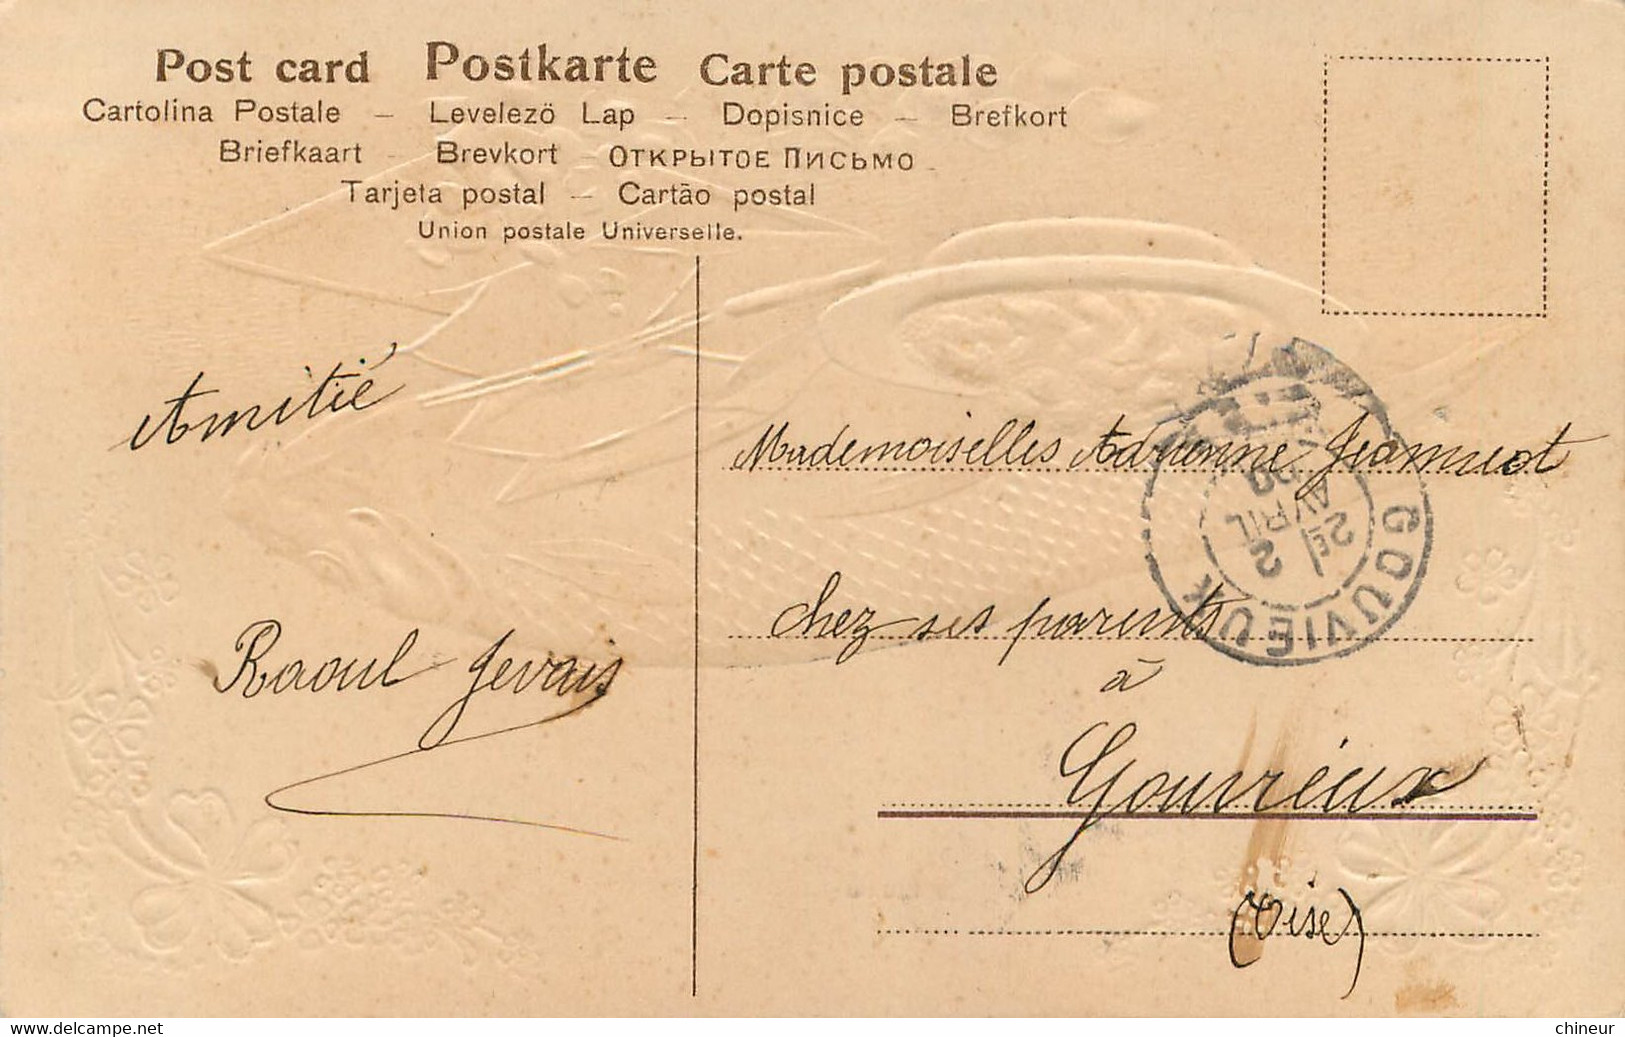 Post card Postkarte Carte postale
Cartolina Postale – Levelezö Lap – Dopisnice – Brefkort
Briefkaart - Brevkort - ОТКРЫТОЕ ПИСЬМО -
Tarjeta postal – Cartão postal
Union postale Universelle.
Amitié
Raoul Gervais
Mademoiselles Adrienne Jeannot
chez ses parents
à
Gouvieux
(Oise)
GOUVIEUX
2E
2
AVRIL
www.delcampe.net
chineur